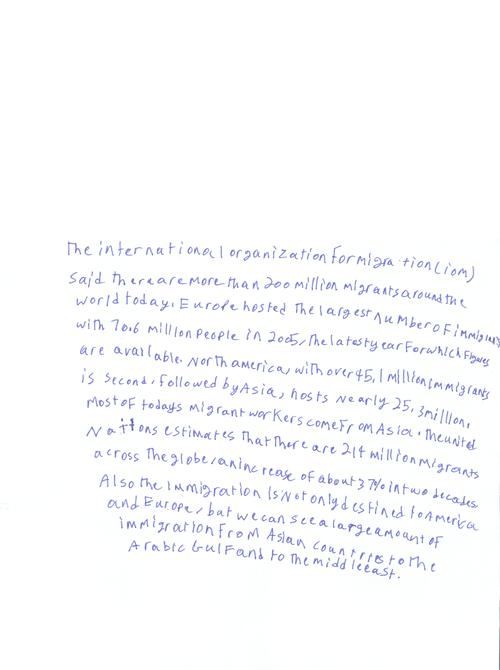 The international organization for migration (iom)
Said there are more than 200 million migrants around the
world today. Europe hosted the largest number of immigrants
with 70.6 million people in 2005, the latest year for which figures
are available. North america, with over 45,1 million immigrants
is second, followed by Asia, hosts nearly 25,3 million.
Most of todays migrant workers come from Asia. the united
Nations estimates that there are 214 million migrants
across the globe, an increase of about 37% in two decades
Also the immigration is not only destined to America
and Europe, but we can see a large amount of
immigration from Asian countries to the
Arabic Gulf and to the middle east.